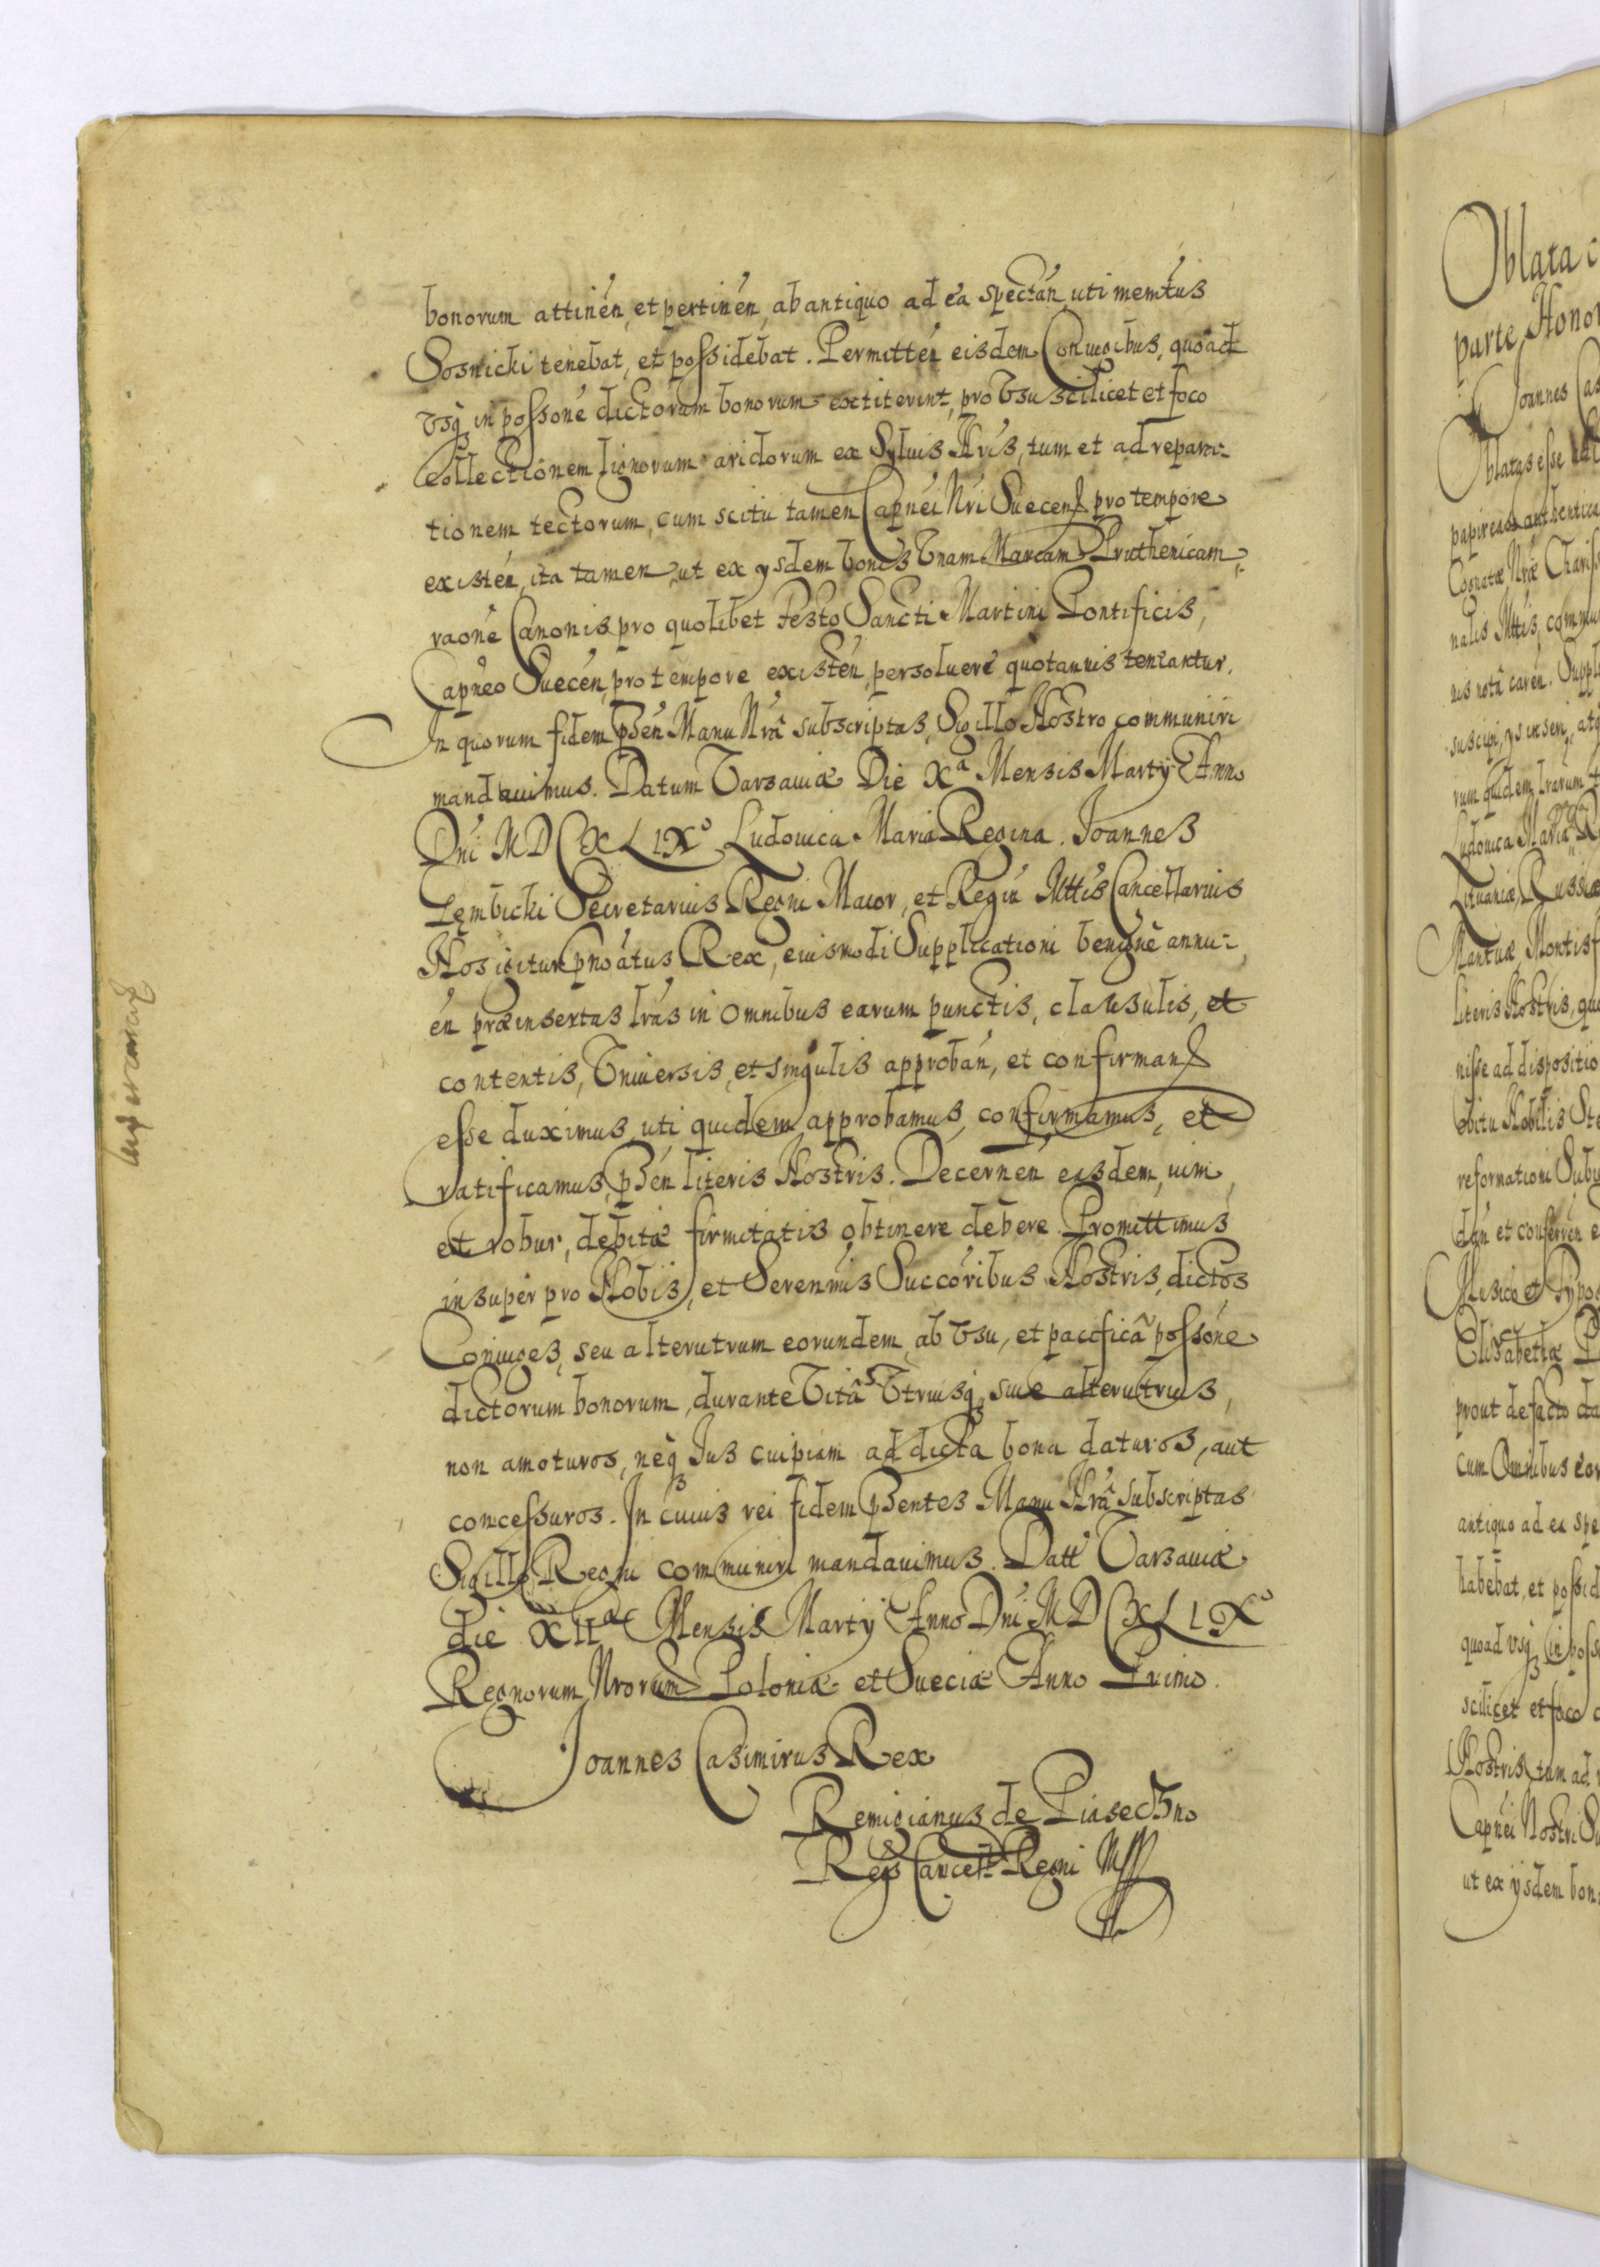 bonorum attinén, et pertinén, ab antiquo ad ea spectán, uti memtus
Sosnicki tenebat, et possidebat. Permittén eisdem Coniugibus, quoad
Vsq in possone dictorum bonorum extiterint, pro Vsu scilicet et foco
collectionem lignorum aridorum ex Syluis Nris, tum et ad repara-
tionem tectorum, cum scitu tamen Capnei Nri Suecen pro tempore
existén, ita tamen, ut ex ysdem bonis Vnam Marcam Pruthenicam,
raone Canonis pro quolibet Festo Sancti Martini Pontificis,
Capneo Suecén, pro tempore existén, persoluere quotannis teneantur.
In quorum fidem psén Manu Nrâ subscriptas, Sigillo Nostro communiri
mandauimus. Datum Varsauiæ Die Xa Mensis Marty Anno
Dni MDCXLIXo Ludouica Maria Regina. Joannes
Gembicki Secretarius Regni Maior, et Regin Mttis Cancellarius
Nos igitur pnoatus Rex, eiusmodi Supplicationi benignè annu-
én præinsertas lras in omnibus earum punctis, clausulis, et
contentis, Vniuersis, et singulis approbán, et confirmand
esse duximus, uti quidem approbamus, confirmamus, et
ratificamus, psén literis Nostris. Decernén easdem, uim,
et robur, debitæ firmitatis obtinere debere. Promittimus
insuper pro Nobis, et Serenmis Succoribus Nostris, dictos
Coniuges, seu alterutrum eorundem, ab Vsu, et pacificâ possone
dictorum bonorum, durante Vitâ Vtriusq, siue alterutrius,
non amoturos, neq Jus cuipiam ad dicta bona daturos, aut
concessuros. In cuius rei fidem psentes Manu Nrâ subscriptas
Sigillo Regni communiri mandauimus. Datt Varsauiæ
die XIIa Mensis Marty Anno Dni MDCXLIXo
Regnorum Nrorum Poloniæ et Sueciæ Anno Primo.
Joannes Casimirus Rex
Remigianus de Piaseczno
Reg Cancell Regni
Oblata c
parte Honor
Joannes Cas
Oblatas esse
papireas authentica
Cognatæ Nræ Chariss
nalis Mttis, commu
nis notâ carén. Suppl
suscipi, ys inseri, atq
rum quidem lrarum t
Ludouica Maria R
Lituaniæ, Russiæ
Mantuæ, Montisf
literis Nostris, qu
nisse ad dispositio
obitu Nobilis Ste
reformationi Sub
dan et conferén e
Elisabethæ
prout de facto da
cum Omnibus eor
antiquo ad ea spe
habebat, et possid
quoad vsq in poss
scilicet et foco c
Nostris, tum ad
Capnei Nostri Su
ut ex ysdem bon